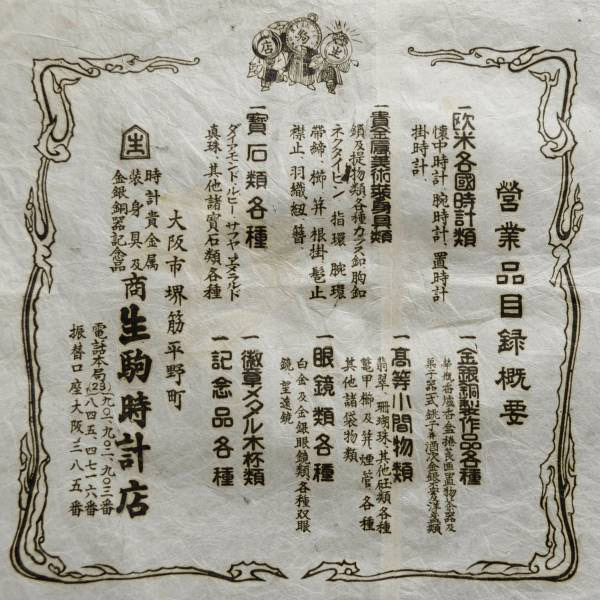 店 駒 生
營業品目録概要
一歐米各國時計類
懷中時計、腕時計、置時計
掛時計
一貴金屬美術裝身具類
鎖及提物類各種カフス釦胸釦
ネクタイピン 指環 腕環
帶締 櫛 笄 根掛 髱止
襟止、羽織紐 簪
一寶石類各種
ダイアモンド、ルビー、サファヤ、エメラルド
真珠、其他諸寶石類各種
一金銀銅製作品各種
華瓶香爐香盒捲莨凾置物茶器及
菓子器式銚子并酒次金銀盃及洋盃類
一高等小間物類
翡翠、珊瑚珠、其他玨類各種
鼈甲櫛及笄煙管各種
其他諸袋物類
一眼鏡類各種
白金及金銀眼鏡類各種双眼
鏡、望遠鏡
一徽章メタル木杯類
一記念品各種
大阪市堺筋平野町
生
時計貴金属
装身具及
金銀銅器記念品
商
生駒時計店
電話本局(23)九〇一、九〇二、九〇三番
八四五、四七一六番
振替口座大阪三八五番